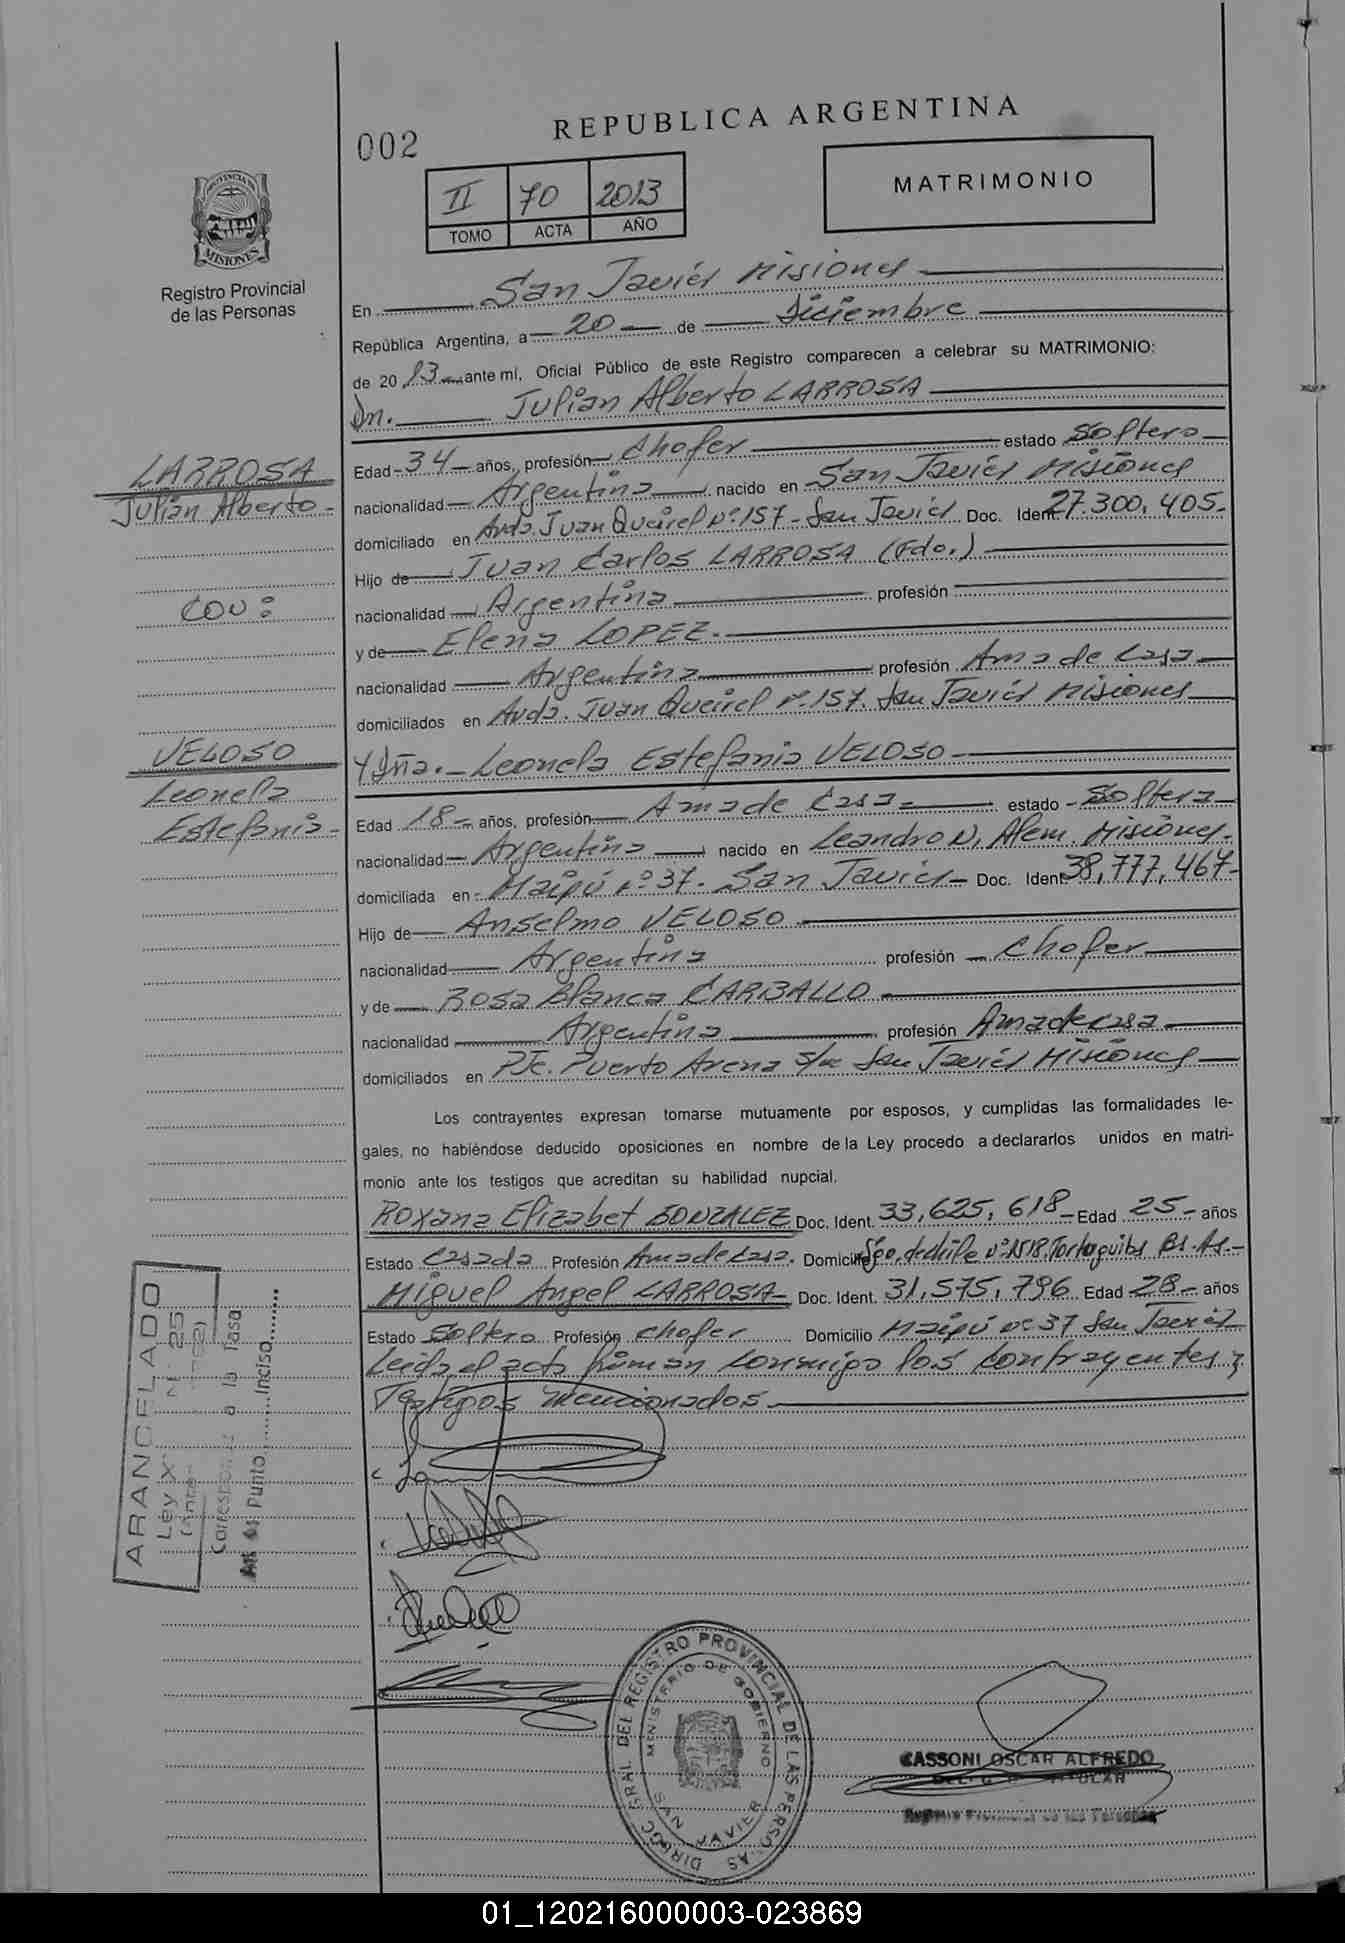 002
REPUBLICA ARGENTINA
II 70 2013
TOMO ACTA AÑO
MATRIMONIO
PROVINCIA DE MISIONES
Registro Provincial
de las Personas
En San Javier Misiones
República Argentina, a 20 de Diciembre
de 2013 ante mí, Oficial Público de este Registro comparecen a celebrar su MATRIMONIO:
Dn. Julian Alberto LARROSA
LARROSA
Julian Alberto
Edad 34 años, profesión Chofer estado Soltero
nacionalidad Argentina nacido en San Javier Misiones
domiciliado en Avda. Juan Queirel Nº 157 - San Javier Doc. Ident. 27.300.405.
Hijo de Juan Carlos LARROSA (Fdo.)
con:
nacionalidad Argentina profesión
y de Elena LOPEZ.
nacionalidad Argentina profesión Ama de Casa
domiciliados en Avda. Juan Queirel Nº 157. San Javier Misiones
VELOSO
Leonela
Estefania
Y Dña. Leonela Estefania VELOSO
Edad 18 años, profesión Ama de Casa estado Soltera
nacionalidad Argentina nacido en Leandro N. Alem. Misiones.
domiciliada en Maipú nº 37. San Javier Doc. Ident. 38,777,467
Hijo de Anselmo VELOSO
nacionalidad Argentina profesión Chofer
y de Rosa Blanca CARBALLO
nacionalidad Argentina profesión Ama de casa
domiciliados en Pje. Puerto Arena s/n San Javier Misiones
Los contrayentes expresan tomarse mutuamente por esposos, y cumplidas las formalidades le-
gales, no habiéndose deducido oposiciones en nombre de la Ley procedo a declararlos unidos en matri-
monio ante los testigos que acreditan su habilidad nupcial.
Roxana Elizabet GONZALEZ Doc. Ident. 33,625,618 Edad 25 años
Estado Casada Profesión Ama de casa. Domicilio nº 1518, Bs. As.
Miguel Angel LARROSA Doc. Ident. 31,575,796 Edad 28 años
Estado Soltero Profesión chofer Domicilio Maipú nº 37 San Javier
Leida el acta firman conmigo los contrayentes y
Testigos mencionados
ARANCELADO
Ley X Nº 25
Corresponde a la Tasa
Punto Inciso
DIRECC. GRAL. DEL REGISTRO PROVINCIAL DE LAS PERSONAS
MINISTERIO DE GOBIERNO
SAN JAVIER
CASSONI OSCAR ALFREDO
TITULAR
Registro Provincial de las Personas
01_120216000003-023869